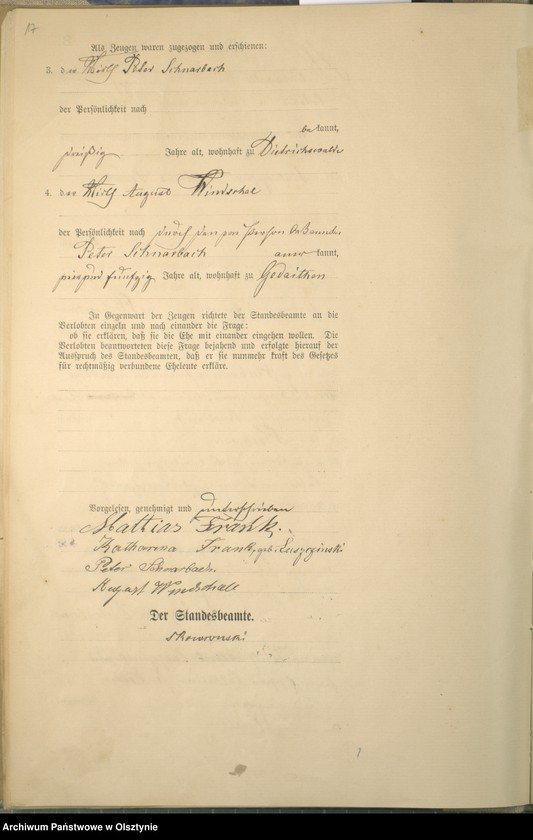 17
Als Zeugen waren zugezogen und erschienen:
3. der Wirth Peter Schnarbach
der Persönlichkeit nach
be kannt,
dreißig Jahre alt, wohnhaft zu Dietrichswalde
4. der Wirth August Windschal
der Persönlichkeit nach durch den per Person bekannten
Peter Schnarbach aner kannt,
vierund fünfzig Jahre alt, wohnhaft zu Gedaithen
In Gegenwart der Zeugen richtete der Standesbeamte an die
Verlobten einzeln und nach einander die Frage:
ob sie erklären, daß sie die Ehe mit einander eingehen wollen. Die
Verlobten beantworteten diese Frage bejahend und erfolgte hierauf der
Ausspruch des Standesbeamten, daß er sie nunmehr kraft des Gesetzes
für rechtmäßig verbundene Eheleute erkläre.
Vorgelesen, genehmigt und unterschrieben
Mattias Frank.
Katharena Frank, geb.
Peter Schnarbach.
August Windschall
Der Standesbeamte.
Skowronski
Archiwum Państwowe w Olsztynie